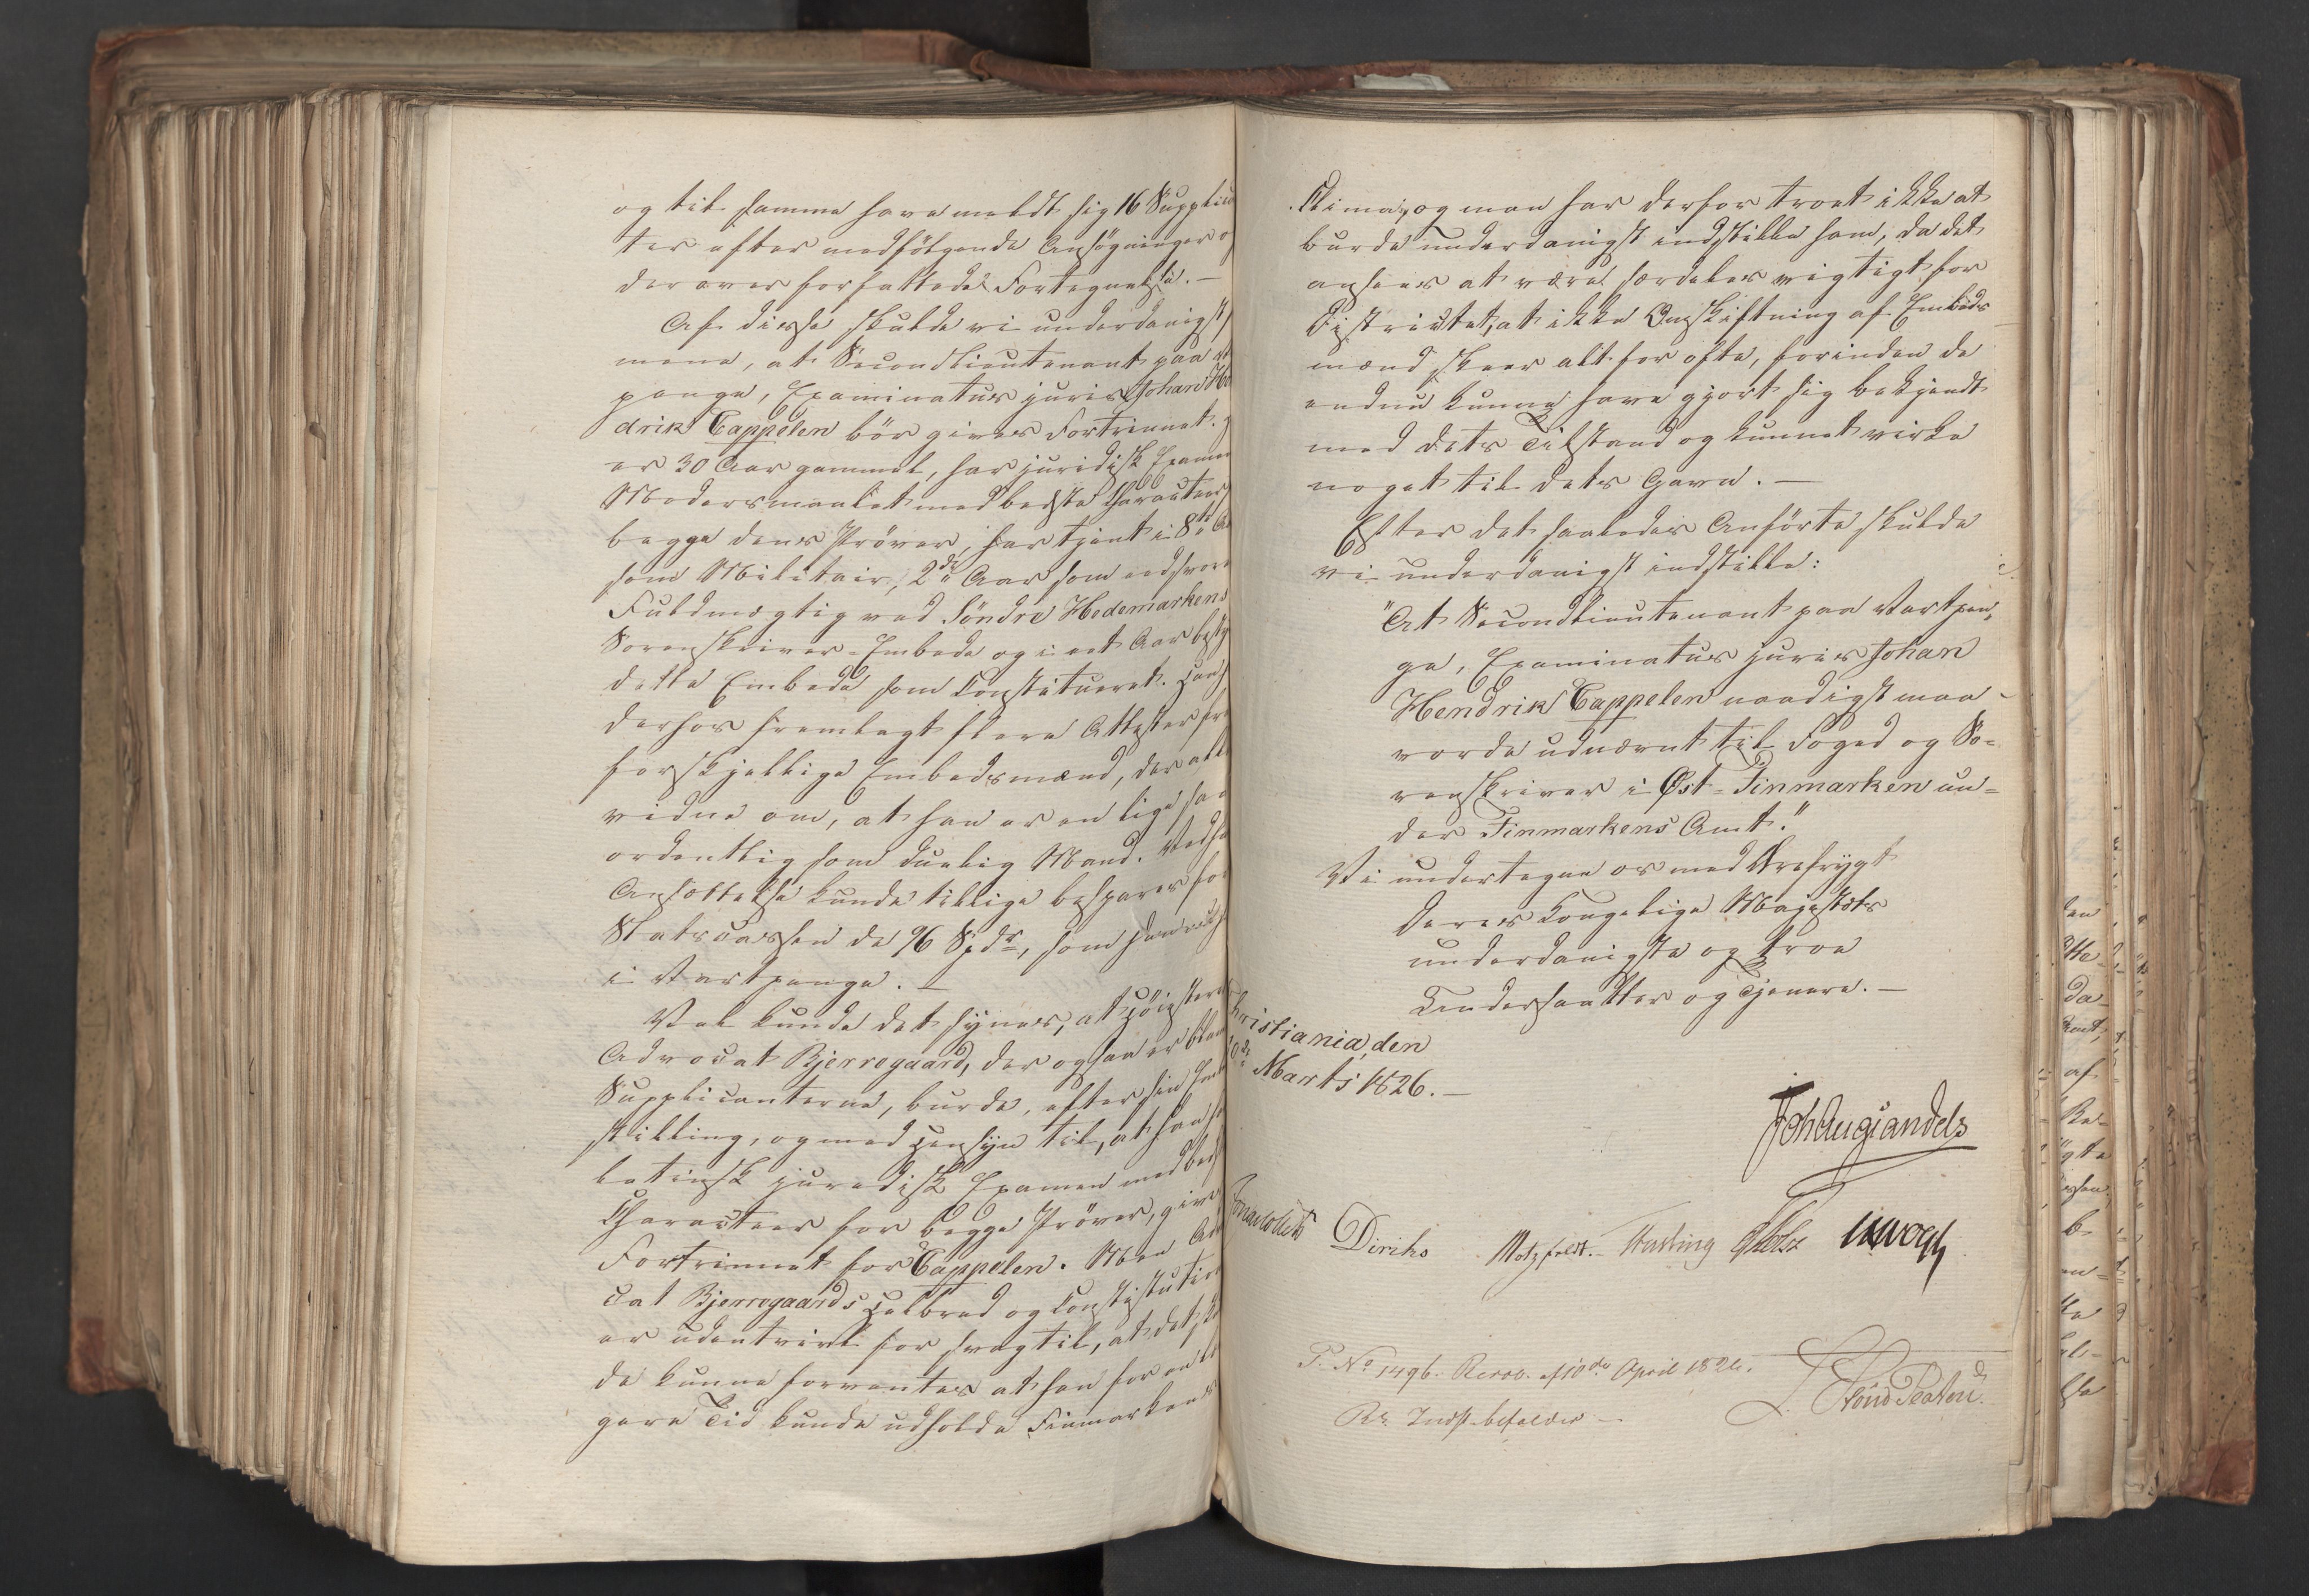 og til samme have meldt sig 16 Supplican
ter efter medfölgende Ansögninger og
derover forfattede Fortegnelse. —
Af disse skulde vi underdanigst
mene, at Secondlieutenant paa Vart
penge, Examinatus juris Johan Hen
drik Cappelen bör gives Fortrinnet.
er 30 Aar gammel, har juridisk Examen
Modersmaalet med bedste Characteer
begge dens Pröver, har tjent i 8te Aar
som Militair, 2de Aar som eedsvoren
Fuldmægtig ved Söndre Hedemarkens
Sorenskriver-Embede og i eet Aar besty
dette Embede som Constitueret. Han h
derhos fremlagt flere Attester fra
forskjellige Embedsmænd, der alle
vidne om, at han er en lige saa
ordentlig som duelig Mand. Ved ha
Ansættelse kunde tillige bespares for
Statscassen de 96 Spdr, som han
i Vartpenge. —
Vel kunde det synes, at Höiesteret
Advocat Bjerregaard, der ogsaa er blan
Supplicanterne, burde, efter sin
stilling, og med Hensyn til, at han h
latinsk juridisk Examen med beds
Characteer for begge Pröver, give
Fortrinnet for Cappelen. Men Ad
cat Bjerregaards Helbred og Constitution
er udentvivl for svag til, at det sku
de kunne forventes at han for en læn
gere Tid kunde udholde Finmarkens
Clima, og man har derfor troet ikke at
burde underdanigst indstille ham, da det
ansees at være særdeles vigtigt for
Districtet, at ikke Omskiftning af Embeds
mænd skeer alt for ofte, forinden de
endnu kunne have gjort sig bekjendt
med dets Tilstand og kunnet virke
noget til dets Gavn. —
Efter det saaledes Anförte skulde
vi underdanigst indstille:
"At Secondlieutenant paa Vartpen-
ge, Examinatus juris Johan
Hendrik Cappelen naadigst maa
vorde udnævnt til Foged og So-
renskriver i Øst-Finmarken un-
der Finmarkens Amt."
Vi undertegne os med Ærefrygt
Deres Kongelige Majestæts
underdanigste og troe
Undersaatter og Tjenere. —
hristiania, den
de Marts 1826. —
Joh Aug Sandels
Jonas Collett Diriks Motzfeldt. Krefting Holst Vogt
P. No 1496. Resol. af 10de April 1826.
Rs Indst. befaldes —